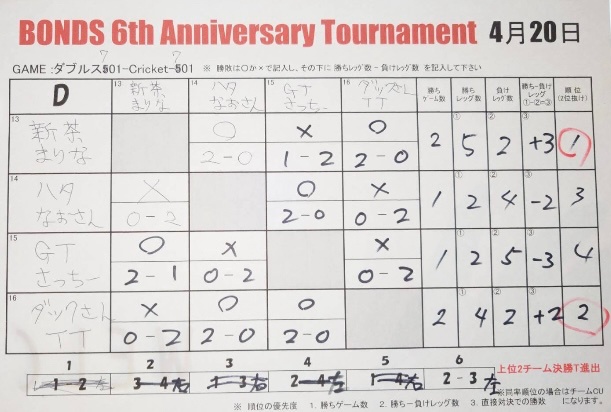 BONDS 6th Anniversary Tournament 4月20日
GAME :ダブルス701-Cricket-701 ※ 勝敗は○か×で記入し、その下に 勝ちレッグ数 − 負けレッグ数 を記入して下さい
D 13 新茶 まりな 14 ハタ なおさん 15 GT さっちー 16 ダックさん TT 勝ちゲーム数 勝ちレッグ数 負けレッグ数 勝ち−負けレッグ ①−②=③ 順位 (2位抜け)
13 新茶 まりな ○ 2-0 × 1-2 ○ 2-0 2 ① 5 ② 2 ③ +3 1
14 ハタ なおさん × 0-2 ○ 2-0 × 0-2 1 ① 2 ② 4 ③ -2 3
15 GT さっちー ○ 2-1 × 0-2 × 0-2 1 ① 2 ② 5 ③ -3 4
16 ダックさん TT × 0-2 ○ 2-0 ○ 2-0 2 ① 4 ② 2 ③ +2 2
1 2 3 4 5 6
1-2 3-4 右 1-3 右 2-4 左 1-4 右 2-3 左
上位2チーム決勝T進出
※同率順位の場合はチームCU
※ 順位の優先度 1. 勝ちゲーム数 2. 勝ち−負けレッグ数 3. 直接対決での勝敗 になります。